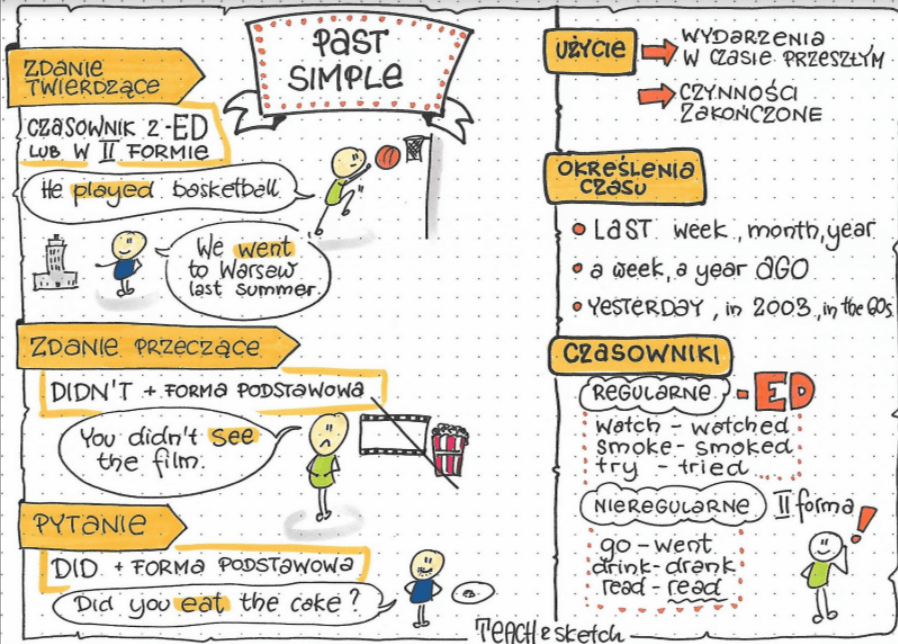 PAST
SIMPLE
ZDANIE
TWIERDZĄCE
CZASOWNIK Z -ED
LUB W II FORMIE
He played basketball.
We went
to Warsaw
last summer.
ZDANIE PRZECZĄCE
DIDN'T + FORMA PODSTAWOWA
You didn't see
the film.
PYTANIE
DID + FORMA PODSTAWOWA
Did you eat the cake?
UŻYCIE
WYDARZENIA
W CZASIE PRZESZŁYM
CZYNNOŚCI
ZAKOŃCZONE
OKREŚLENIA
CZASU
LAST week, month, year
a week, a year AGO
YESTERDAY, in 2003, in the 60s
CZASOWNIKI
REGULARNE - ED
watch - watched
smoke - smoked
try - tried
NIEREGULARNE II forma
go - went
drink - drank
read - read
TEACH & sketch